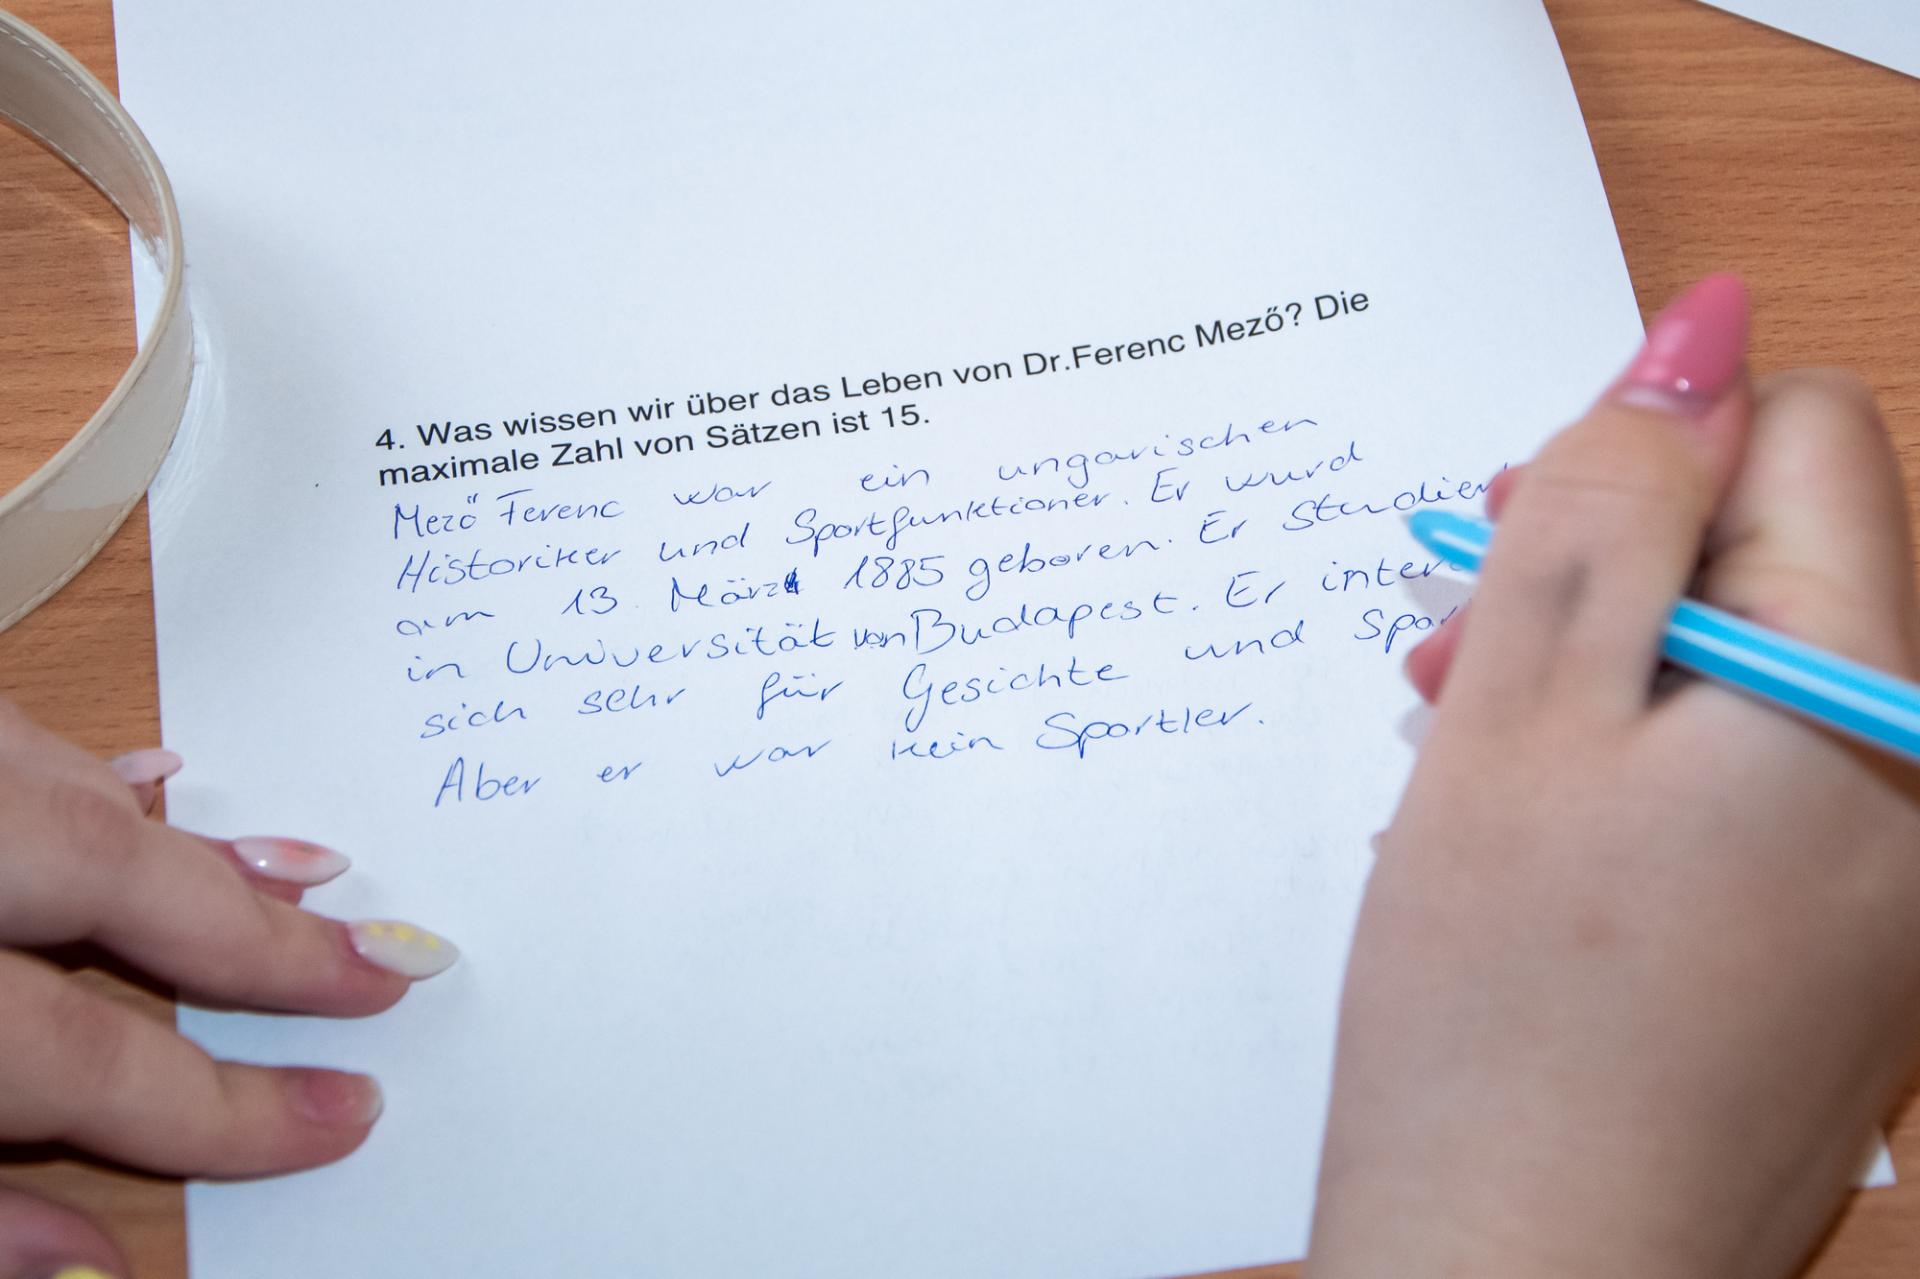 4. Was wissen wir über das Leben von Dr.Ferenc Mező? Die
maximale Zahl von Sätzen ist 15.
Mező Ferenc war ein ungarischen
Historiker und Sportfunktioner. Er wurd
am 13. März 1885 geboren. Er studier
in Universität von Budapest. Er inter
sich sehr für Gesichte und Spor
Aber er war kein Sportler.